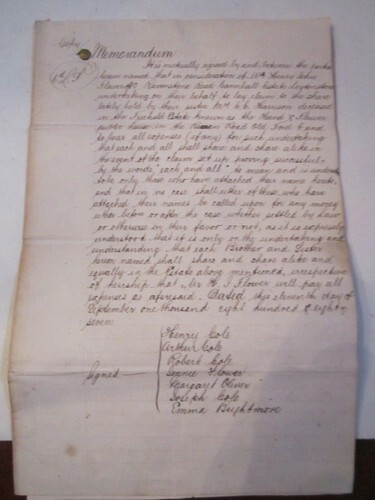 Copy
Memorandum
It is mutually agreed by and between the parties
herein named that in consideration of Mr Henry John
Flower of Brownstone Road Cannhall Estate Leytonstone
undertaking on their behalf to lay claim to the share
lately held by their sister Mrs C E Harrison deceased
in the Estate known as the Hand & Flower
public house in the Road Old Ford E and
to bear all expenses (if any) for such undertaking
that each and all shall share and share alike in
the event of the claim set up proving successful
by the words "each and all" to mean and is understood
to be only those who have attached their name hereto,
and that in no case shall either of those who have
attached their names be called upon for any money
either before or after the case whether settled by Law
or otherwise in their favor or not, as it is expressly
understood that it is only on the undertaking and
understanding that each Brother and Sister
herein named shall share and share alike and
equally in the Estate above mentioned, irrespective
of heirship that Mr H J Flower will pay all
expenses as aforesaid. Dated this eleventh day of
September one thousand eight hundred & eighty
seven
Henry Cole
Arthur Cole
Robert Cole
Signed Jennie Flower
Margaret Oliver
Joseph Cole
Emma Brightmore